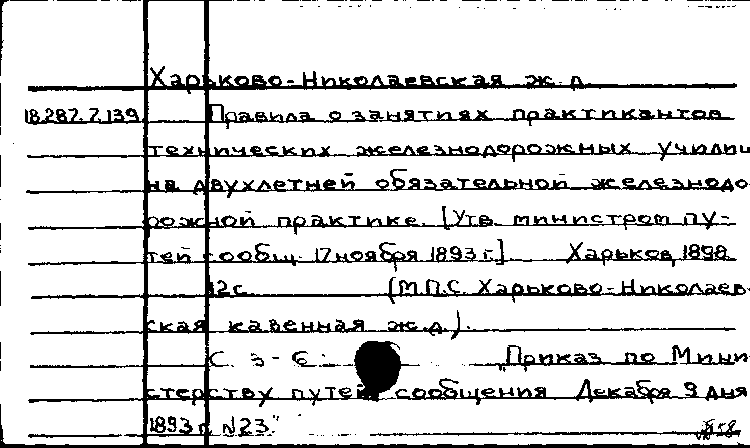 Харьково-Николаевская ж. д.
18.287.7.139 Правила о занятиях практикантов
технических железнодорожных училищ
на двухлетней обязательной железнодо
рожной практике. [Утв. министром пу-
тей сообщ. 17 ноября 1893 г.] Харьков, 1898
12 с. (М.П.С. Харьково-Николаев-
ская казенная ж.д.).
С. 3-6: „Приказ по Мини
стерству путей сообщения Декабря 9 дня
1893 г. N23."